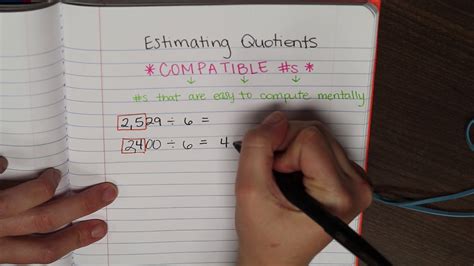 Estimating Quotients
*COMPATIBLE #s*
#s that are easy to compute mentally
2,529 ÷ 6 =
2400 ÷ 6 = 4